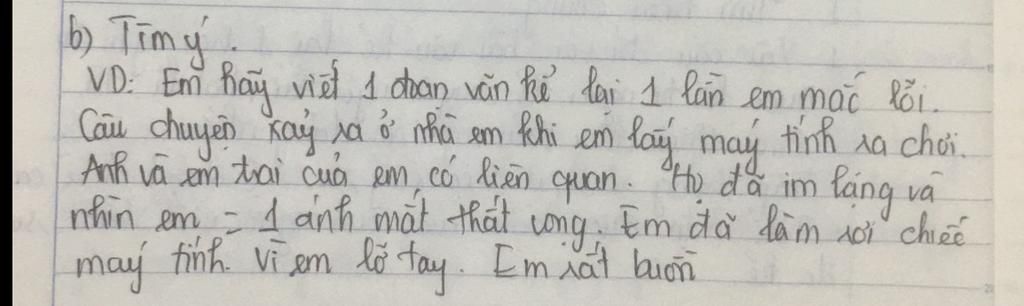 b) Tìm ý.
VD: Em hãy viết 1 đoạn văn kể lại 1 lần em mắc lỗi.
Câu chuyện xảy ra ở nhà em khi em lấy máy tính ra chơi.
Anh và em trai của em có liên quan. Họ đã im lặng và
nhìn em = 1 ánh mắt thất vọng. Em đã làm rơi chiếc
máy tính. Vì em lỡ tay. Em rất buồn